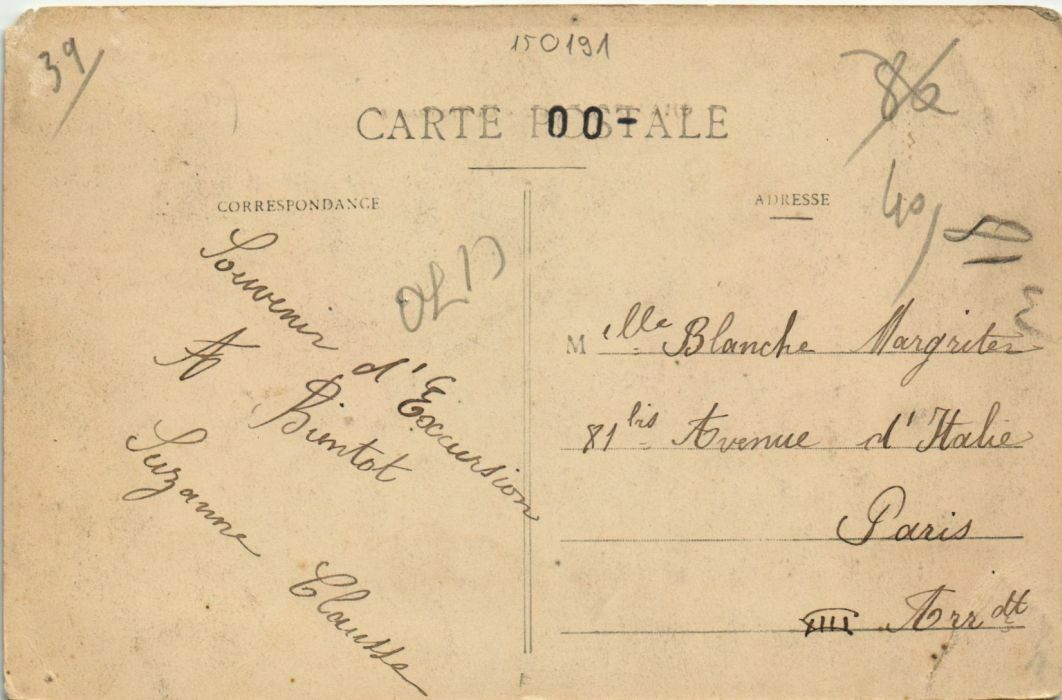 39/
150191
86
CARTE POSTALE
00-
CORRESPONDANCE
ADRESSE
40/
Souvenir d'Excursion
A Bientot
Suzanne Clausse
M elle Blanche Margriter
81 bis Avenue d'Italie
Paris
XIII Arrdt